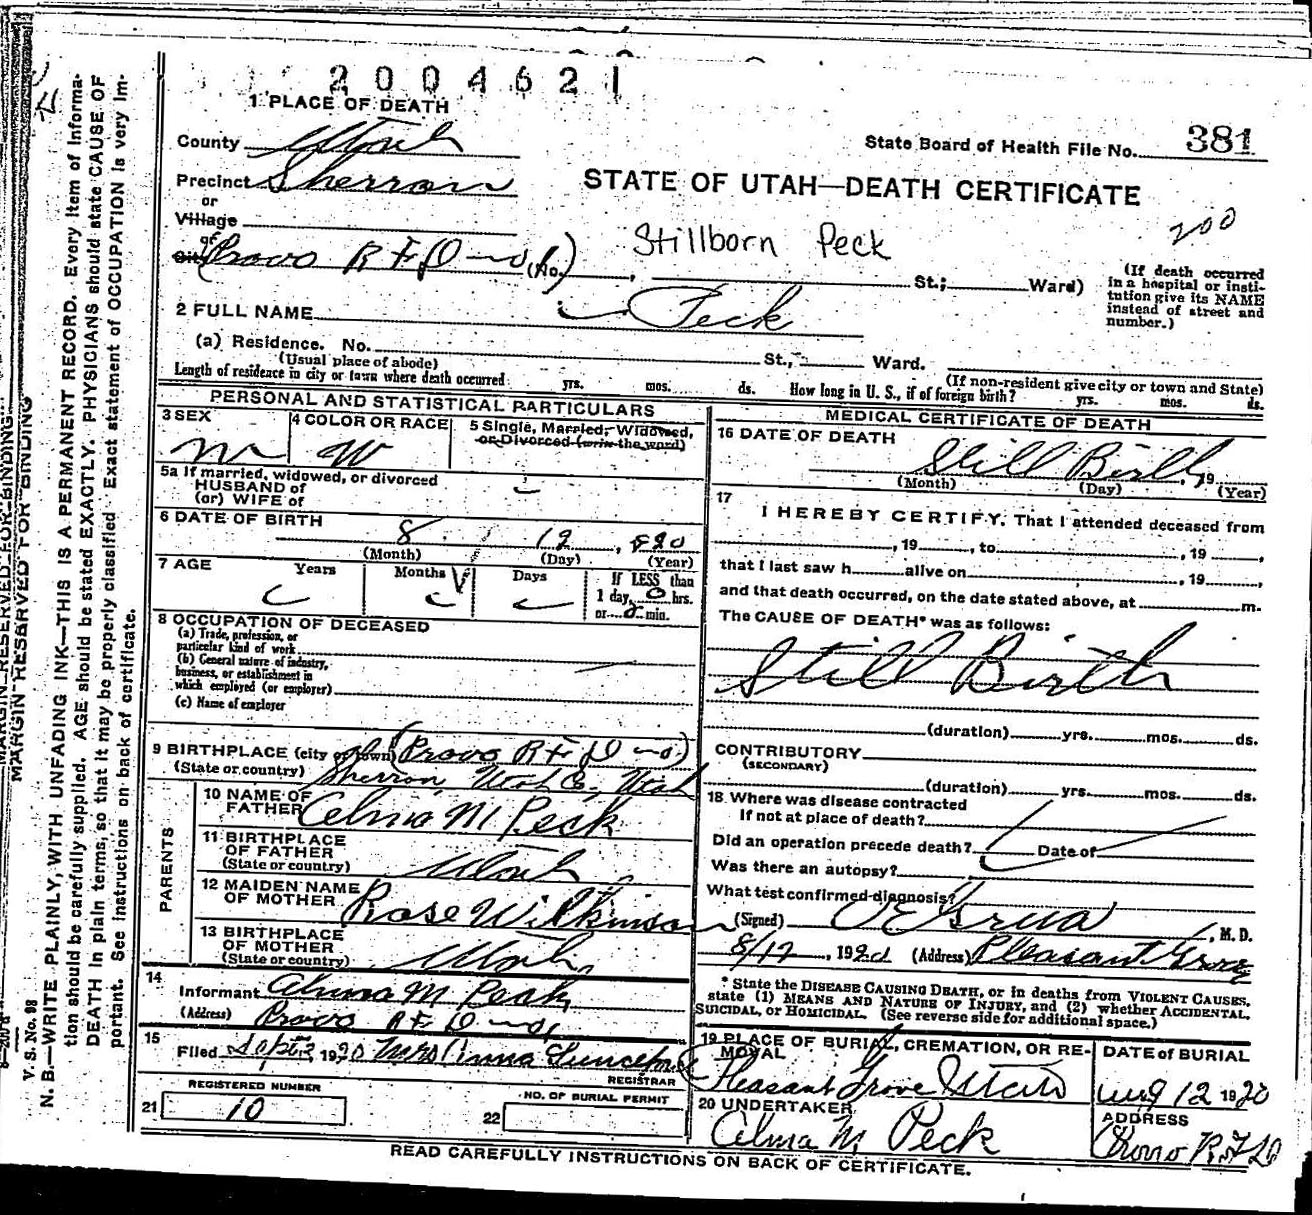 2004621
1 PLACE OF DEATH
County Utah
State Board of Health File No. 381
Precinct Sherron
STATE OF UTAH—DEATH CERTIFICATE
or
Village
200
or
City (Provo R F D no 1) (No. , St.; Ward)
Stillborn Peck
(If death occurred in a hospital or insti-
tution give its NAME
instead of street and
number.)
2 FULL NAME Peck
(a) Residence. No. St., Ward.
(Usual place of abode) (If non-resident give city or town and State)
Length of residence in city or town where death occurred yrs. mos. ds. How long in U. S., if of foreign birth? yrs. mos. ds.
PERSONAL AND STATISTICAL PARTICULARS
3 SEX
M
4 COLOR OR RACE
W
5 Single, Married, Widowed,
or Divorced (write the word)
5a If married, widowed, or divorced
HUSBAND of
(or) WIFE of
6 DATE OF BIRTH
8 12, 920
(Month) (Day) (Year)
7 AGE Years Months Days
If LESS than
1 day, 0 hrs.
or 0 min.
8 OCCUPATION OF DECEASED
(a) Trade, profession, or
particular kind of work
(b) General nature of industry,
business, or establishment in
which employed (or employer)
(c) Name of employer
9 BIRTHPLACE (city or town) (Provo R F D no 1)
(State or country) Sherron, Utah Co, Utah
PARENTS
10 NAME OF
FATHER Alma M Peck
11 BIRTHPLACE
OF FATHER
(State or country) Utah
12 MAIDEN NAME
OF MOTHER Rose Wilkinson
13 BIRTHPLACE
OF MOTHER
(State or country) Utah
14
Informant Alma M Peck
(Address) Provo R F D no 1
15
Filed Sept 3, 1920 Mrs
REGISTRAR
REGISTERED NUMBER
21 10
NO. OF BURIAL PERMIT
22
MEDICAL CERTIFICATE OF DEATH
16 DATE OF DEATH
Still Birth, 19
(Month) (Day) (Year)
17
I HEREBY CERTIFY, That I attended deceased from
, 19 , to , 19 ,
that I last saw h alive on , 19 ,
and that death occurred, on the date stated above, at m.
The CAUSE OF DEATH* was as follows:
Still Birth
(duration) yrs. mos. ds.
CONTRIBUTORY
(SECONDARY)
(duration) yrs. mos. ds.
18 Where was disease contracted
If not at place of death?
Did an operation precede death? Date of
Was there an autopsy?
What test confirmed diagnosis?
(Signed) , M. D.
8/12, 1920 (Address) Pleasant Grove
* State the DISEASE CAUSING DEATH, or in deaths from VIOLENT CAUSES,
state (1) MEANS AND NATURE OF INJURY, and (2) whether ACCIDENTAL,
SUICIDAL, or HOMICIDAL. (See reverse side for additional space.)
19 PLACE OF BURIAL, CREMATION, OR RE-
MOVAL
Pleasant Grove Utah
DATE of BURIAL
Aug 12 1920
20 UNDERTAKER
Alma M. Peck
ADDRESS
Provo R.F.D
READ CAREFULLY INSTRUCTIONS ON BACK OF CERTIFICATE.
MARGIN RESERVED FOR BINDING
V. S. No. 98
N. B.—WRITE PLAINLY, WITH UNFADING INK—THIS IS A PERMANENT RECORD. Every item of informa-
tion should be carefully supplied. AGE should be stated EXACTLY. PHYSICIANS should state CAUSE OF
DEATH in plain terms, so that it may be properly classified. Exact statement of OCCUPATION is very im-
portant. See instructions on back of certificate.